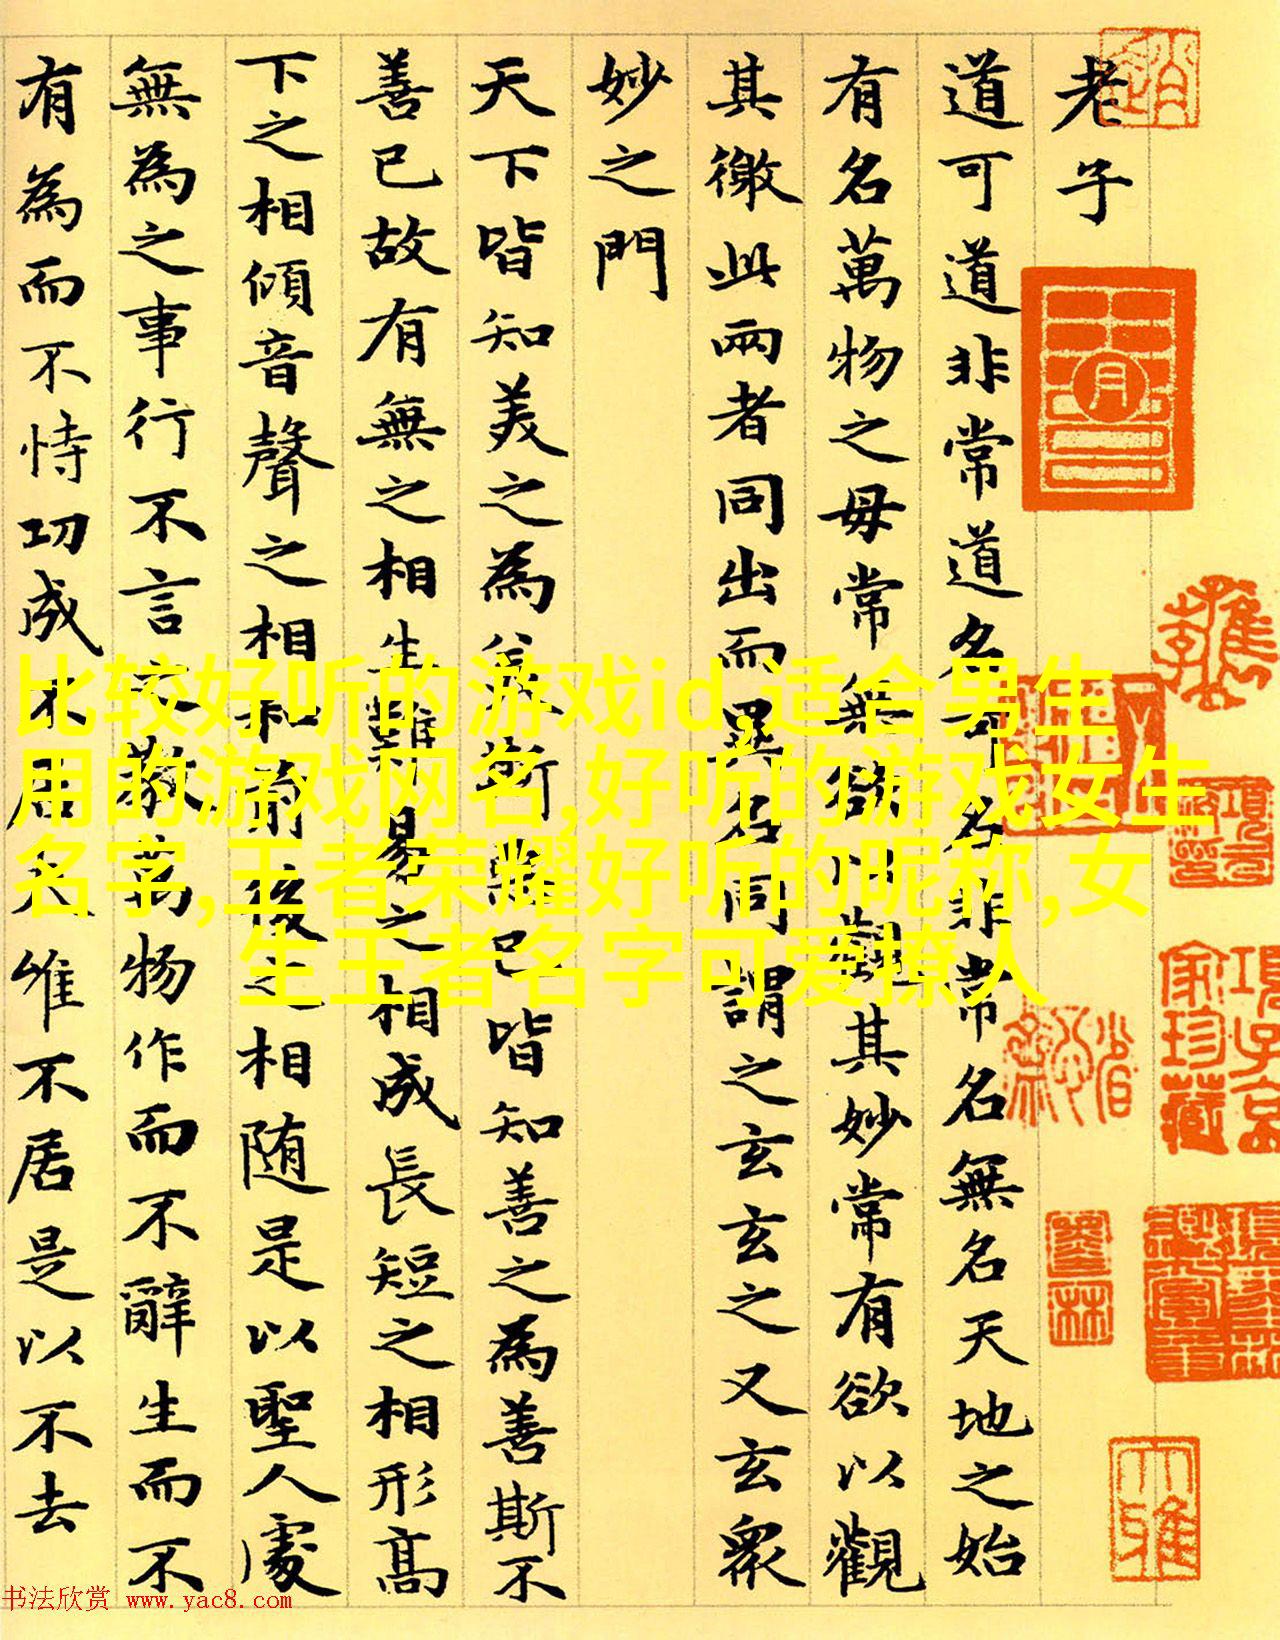 老子
道可道非常道名可名非常名無名天地之始
有名萬物之母常無欲以觀其妙常有欲以觀
其徼此兩者同出而異名同謂之玄玄之又玄衆
妙之門
天下皆知美之為美斯惡已皆知善之為善斯不
善已故有無之相生難易之相成長短之相形高
下之相傾音聲之相和前後之相随是以聖人處
無為之事行不言之教萬物作而不辭生而不
有為而不恃功成不居夫唯不居是以不去
比较好听的游戏id,适合男生
用的游戏网名,好听的游戏女生
名字,王者荣耀好听的昵称,女
生王者名字可爱撩人
书法欣赏 www.yac8.com